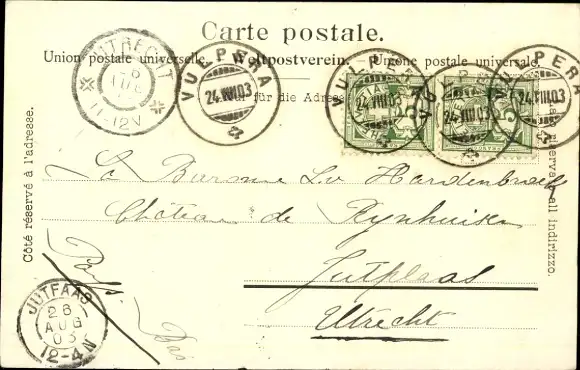 Carte postale.
Union postale universelle. Weltpostverein. Unione postale universale.
für die Adresse
Côté réservé à l'adresse.
all indirizzo.
UTRECHT
11-12V
VULPERA
24.VIII.03
VULPERA
24.VIII.03
24.VIII.03
VULPERA
24.VIII.03
La Baronne Hardenbroek
Château de Rynhuizen
Jutphaas
Utrecht
Pays
Bas
JUTFAAS
26
AUG
03
12-4N